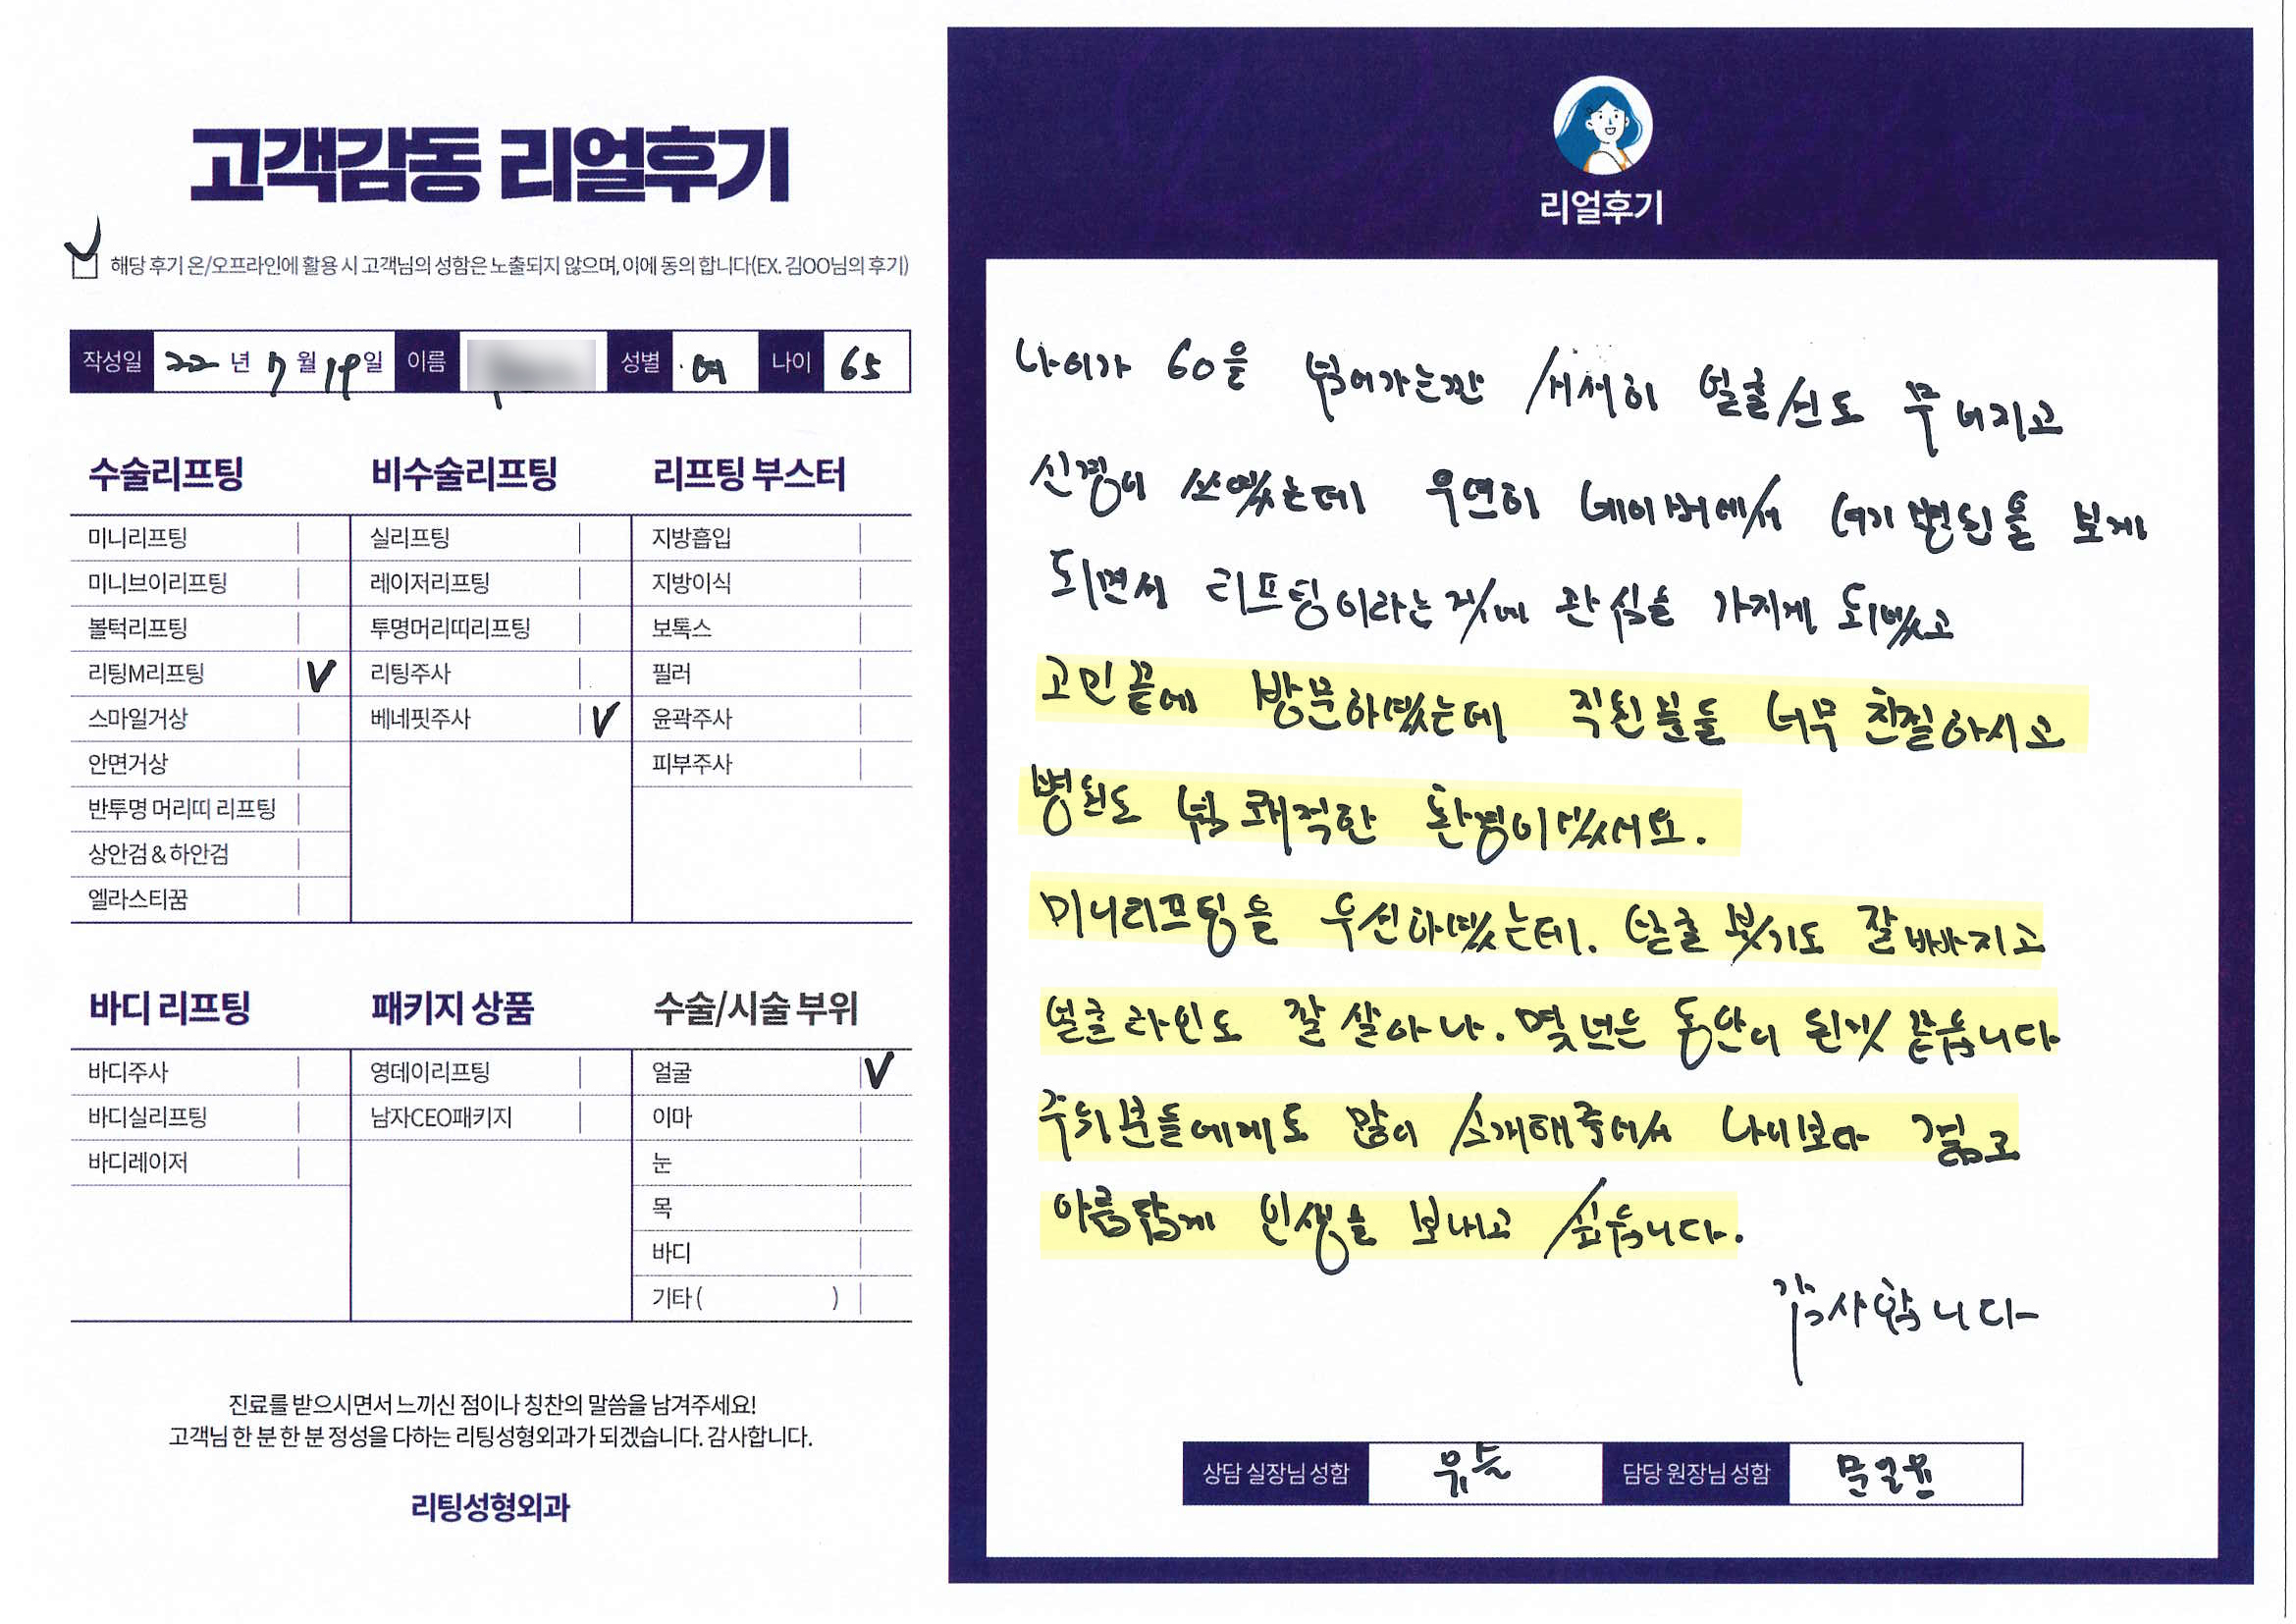 고객감동 리얼후기
해당 후기 온/오프라인에 활용 시 고객님의 성함은 노출되지 않으며, 이에 동의 합니다(EX. 김OO님의 후기)
작성일 22년 7월 19일 이름 성별 여 나이 65
수술리프팅
미니리프팅
미니브이리프팅
볼턱리프팅
리팅M리프팅 V
스마일거상
안면거상
반투명 머리띠 리프팅
상안검 & 하안검
엘라스티꿈
비수술리프팅
실리프팅
레이저리프팅
투명머리띠리프팅
리팅주사
베네핏주사 V
리프팅 부스터
지방흡입
지방이식
보톡스
필러
윤곽주사
피부주사
바디 리프팅
바디주사
바디실리프팅
바디레이저
패키지 상품
영데이리프팅
남자CEO패키지
수술/시술 부위
얼굴 V
이마
눈
목
바디
기타 ( )
진료를 받으시면서 느끼신 점이나 칭찬의 말씀을 남겨주세요!
고객님 한 분 한 분 정성을 다하는 리팅성형외과가 되겠습니다. 감사합니다.
리팅성형외과
리얼후기
나이가 60을 서서히 얼굴선도 무너지고
신경이 쓰였는데 우연히 네이버에서 여기 병원을 보게
되면서 리프팅이라는 것에 관심을 가지게 되었고
고민끝에 방문하였는데 직원분들 너무 친절하시고
병원도 넘 쾌적한 환경이었서요.
미니리프팅을 우선하였는데. 얼굴 붓기도 잘 빠지고
얼굴라인도 잘 살아나. 몇년은 동안이 된것 같습니다
주위분들에게도 많이 소개해주어서 나이보다 젊고
아름답게 인생을 보내고 싶습니다.
감사합니다
상담 실장님 성함 담당 원장님 성함 문일환